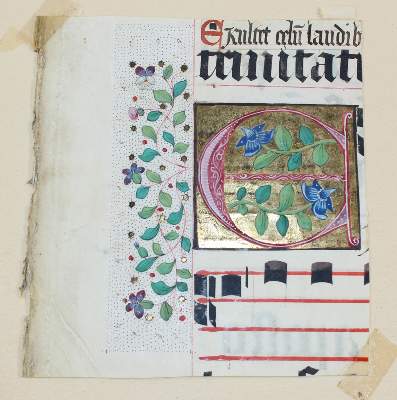 Exultet celū laudib
trinitati
E